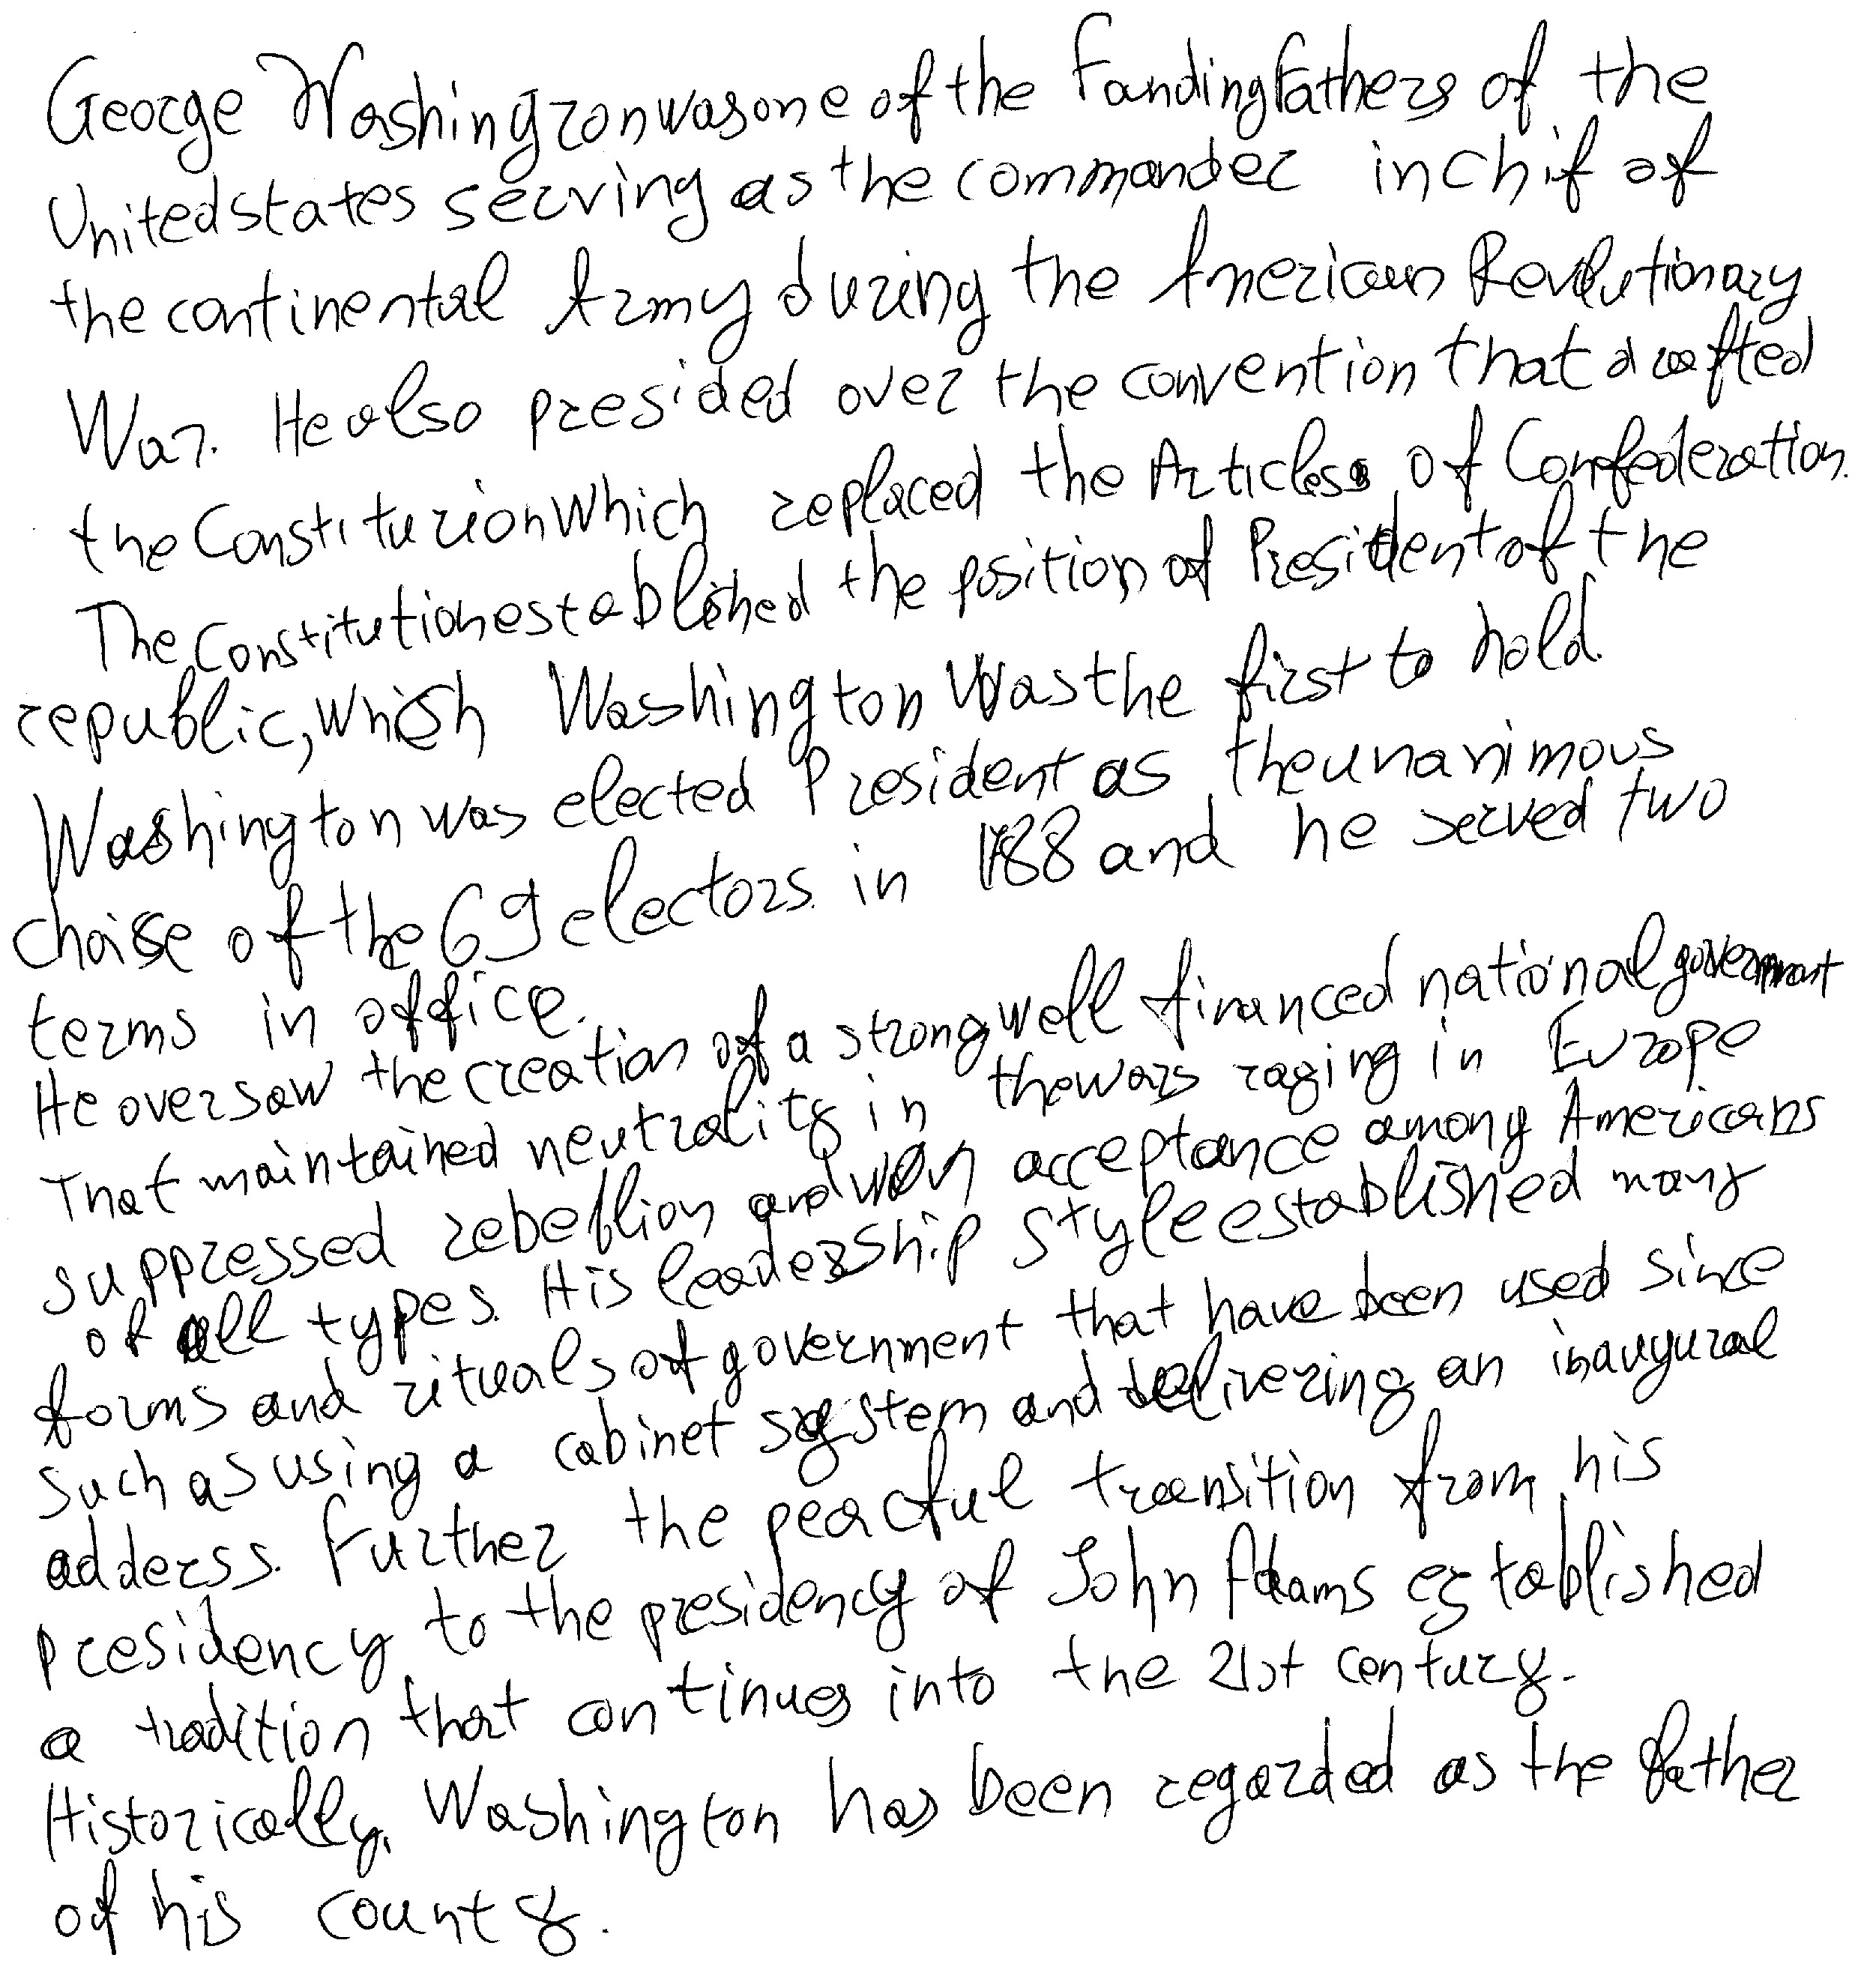 George Washingzon was one of the Fanding Fathers of the
United states serving as the commander in chif of
the continental Army during the American Revolutionary
War. He also presided over the convention that drafted
the Constituzion Which replaced the Articles of Confederation.
The Constitution established the position of President of the
republic, which Washington Was the first to hold.
Washington was elected President as the unanimous
choise of the 69 electors in 1788 and he served two
terms in office.
He oversaw the creation of a strong well financed national government
That maintained neutrality in the wars raging in Europe
suppressed rebellion and won acceptance among Americans
of all types. His leadership style established many
forms and rituals of government that have been used since
such as using a cabinet system and delivering an inaugural
adderss. Further the peacful transition from his
presidency to the presidency of John Adams established
a tradition that continues into the 21st century.
Historically, Washington has been regarded as the father
of his county.